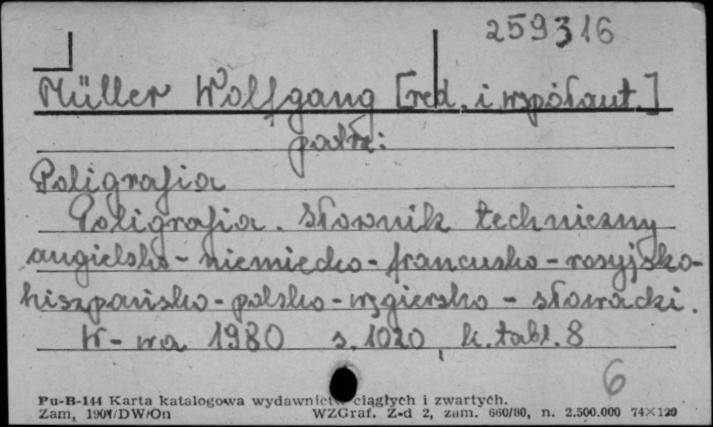 259316
Müller Wolfgang [red. i współaut.]
patrz:
Poligrafia
Poligrafia. Słownik techniczny
angielsko-niemiecko-francusko-rosyjsko-
hiszpańsko-polsko-węgiersko-słowacki.
W-wa 1980 s. 1020, k. tabl. 8
6
Pu-B-144 Karta katalogowa wydawnictw ciągłych i zwartych.
Zam. /DW/On WZGraf. Z-d 2, zam. 660/80, n. 2.500.000 74×120